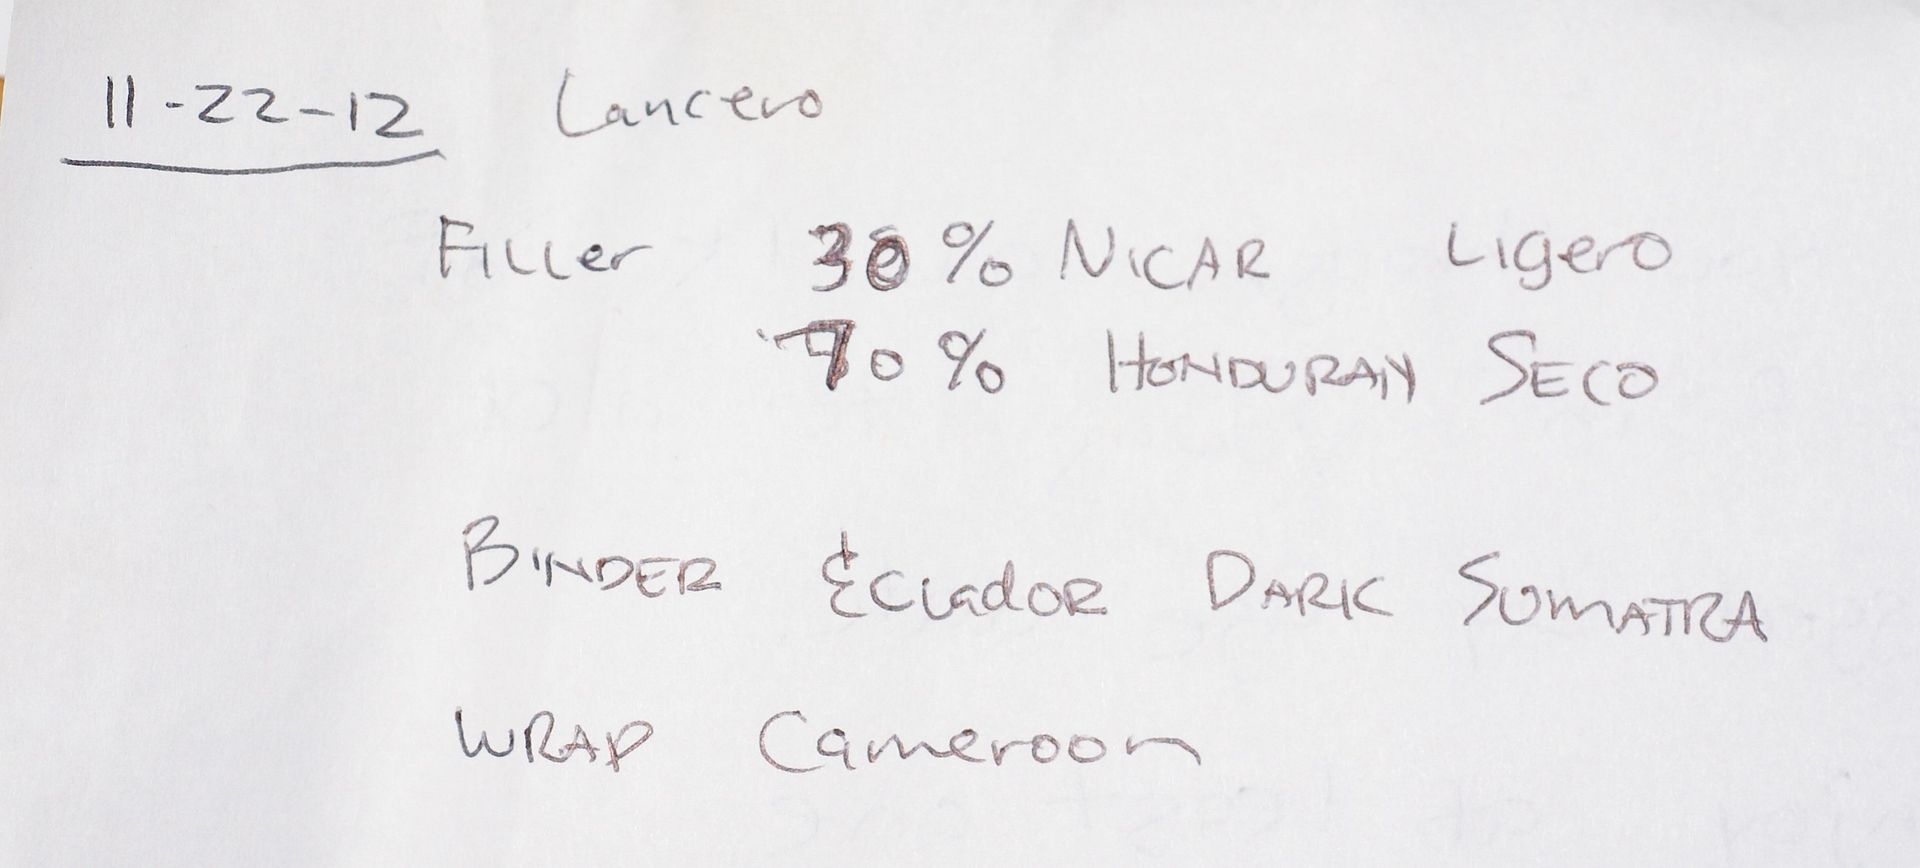 11-22-12 Lancero
Filler 30% NICAR Ligero
70% HONDURAN SECO
BINDER ECuadoR DARK SUMATRA
WRAP Cameroon